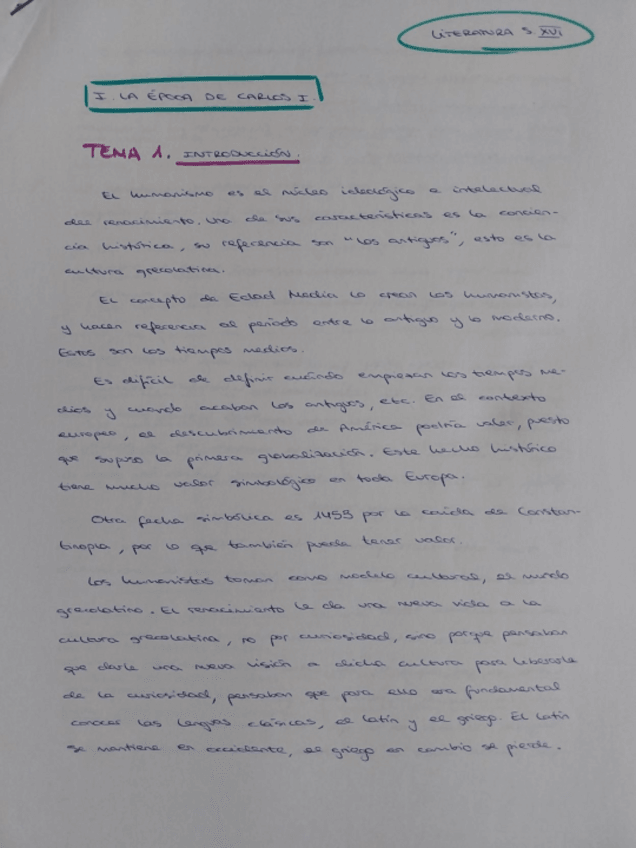 LITERATURA S. XVI
I. LA ÉPOCA DE CARLOS I.
TEMA 1. INTRODUCCIÓN.
El humanismo es el núcleo ideológico e intelectual
del renacimiento. Una de sus características es la concien-
cia histórica, su referencia son "los antiguos", esto es la
cultura grecolatina.
El concepto de Edad Media lo crean los humanistas,
y hacen referencia al periodo entre lo antiguo y lo moderno.
Estos son los tiempos medios.
Es difícil de definir cuándo empiezan los tiempos me-
dios y cuando acaban los antiguos, etc. En el contexto
europeo, el descubrimiento de América podría valer, puesto
que supuso la primera globalización. Este hecho histórico
tiene mucho valor simbológico en toda Europa.
Otra fecha simbólica es 1453 por la caída de Constan-
tinopla, por lo que también puede tener valor.
Los humanistas toman como modelo cultural, el mundo
grecolatino. El renacimiento le da una nueva vida a la
cultura grecolatina, no por curiosidad, sino porque pensaban
que darle una nueva visión a dicha cultura para liberarla
de la curiosidad, pensaban que para ello era fundamental
conocer las lenguas clásicas, el latín y el griego. El latín
se mantiene en occidente, el griego en cambio se pierde.